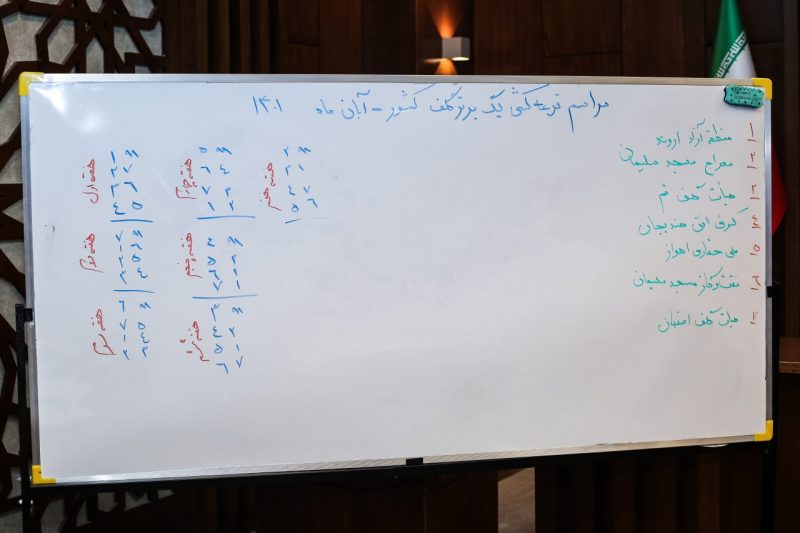 مراسم قرعه کشی لیگ برتر گلف کشور - آبان ماه ۱۴۰۱
۱ منطقه آزاد اروند
۲ معراج مسجد سلیمان
۳ هیأت گلف قم
۴ هندیجان
۵ ملی حفاری اهواز
۶ نفت و گاز مسجد سلیمان
۷ هیأت گلف اصفهان
هفته اول
۱
۷ ۲
۶ ۳
۵ ۴
هفته دوم
۷
۶ ۱
۵ ۲
۴ ۳
هفته سوم
۶
۵ ۷
۴ ۱
۳ ۲
هفته چهارم
۵
۴ ۶
۳ ۷
۲ ۱
هفته پنجم
۴
۳ ۵
۲ ۶
۱ ۷
هفته ششم
۳
۲ ۴
۱ ۵
۷ ۶
هفته هفتم
۲
۱ ۳
۷ ۴
۶ ۵